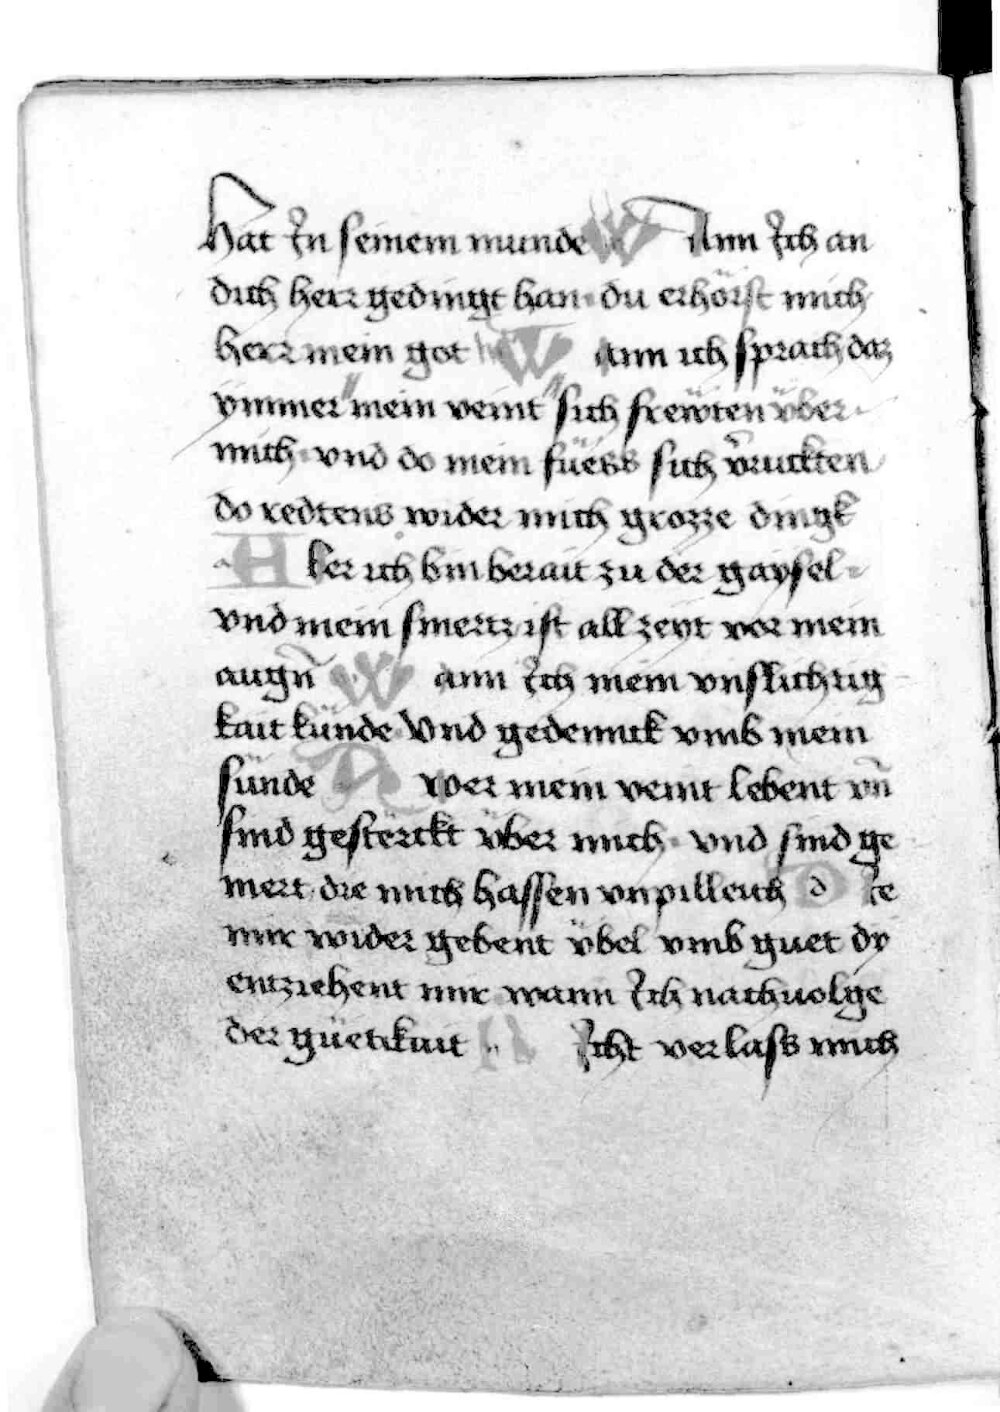 Hat In seinem munde Wann Ich an
dich herr gedingt han du erhörst mich
herr mein got Wann ich sprach daz
ymmer mein veint sich frewten vber
mich vnd do mein füess sich v̄ruckten
do redtens wider mich grozze dingk
Aber ich bin berait zu der gaysel
vnd mein smertz ist all zeyt vor mein
augn̄ Wann Ich mein vnslichtig
kait künde Vnd gedennck vmb mein
sünde Awer mein veint lebent vn̄
sind gesterckt über mich vnd sind ge
mert die mich hassen vnpilleich Die
mir wider gebent vbel vmb guet dy
entziehent mir wann Ich nachuolge
der güetikait Nicht verlass mich